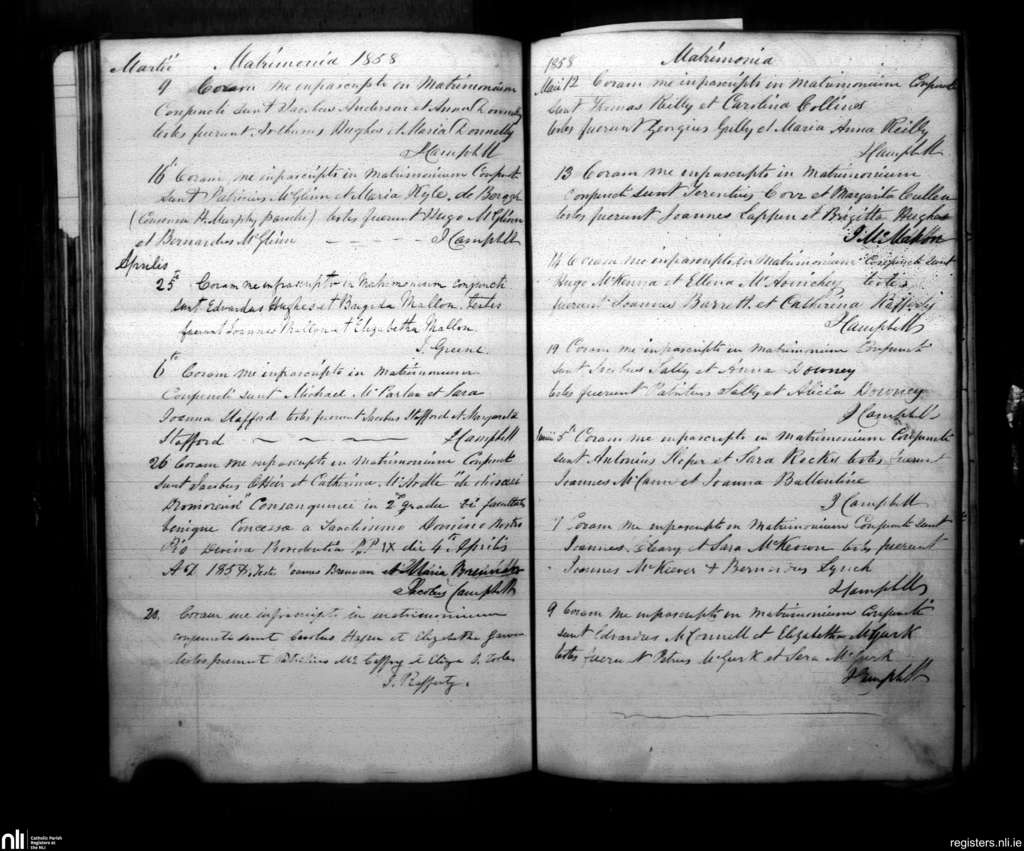 Martii Matrimonia 1858
9 Coram me infrascripto in Matrimonium
Conjuncti sunt Jacobus Anderson et Anna Donnelly
testes fuerunt Arthurus Hughes et Maria Donnelly
J Campbell
16 Coram me infrascripto in Matrimonium Conjuncti
Sunt Patricius McGlinn et Maria Kyle de
(Consensu H. Murphy parochi) testes fuerunt Hugo McGlinn
et Bernardus McGlinn - - - - - J Campbell
Aprilis
25 Coram me infrascripto in Matrimonium conjuncti
sunt Edvardus Hughes et Brigida Mallon, testes
fuerunt Joannes Mallon et Elizabetha Mallon.
J. Greene
6 Coram me infrascripto in matrimonium
Conjuncti sunt Michael McParlan et Sara
Joanna Stafford testes fuerunt Jacobus Stafford et Margarita
Stafford J Campbell
26 Coram me infrascripto in Matrimonium Conjuncti
Sunt Jacobus et Catherina McArdle "de
Dromorensi" Consanguinei in 2º gradu vi facultatis
benigne Concessa a Sanctissimo Domino Nostro
Pio Divina Providentia P.P. IX die 4 Aprilis
A D 1858. Teste Joannes Brennan et Maria Brennan
Jacobus Campbell
20. Coram me infrascripto in matrimonium
conjuncti sunt Carolus Hagan et Elizabetha
testes fuerunt Patricius McCaffrey & Eliza J. Toole
J. Rafferty.
1858 Matrimonia
Maii 12 Coram me infrascripto in matrimonium Conjuncti
sunt Thomas Reilly et Carolina Collins
testes fuerunt Georgius Gully et Maria Anna Reilly
J Campbell
13 Coram me infrascripto in Matrimonium
Conjuncti sunt Terentius Corr et Margarita Cullen
testes fuerunt Joannes Lappin et Brigitta Hughes
J. McMahon
14 Coram me infrascripto in Matrimonium Conjuncti sunt
Hugo McKenna et Ellena McAvinchey testes
fuerunt Joannes Barrett et Catherina Rafferty
J Campbell
19 Coram me infrascripto in matrimonium Conjuncti
sunt Jacobus Lally et Anna Downey
testes fuerunt Patritius Lally et Alicia Downey
J Campbell
Junii 5 Coram me infrascripto in matrimonium Conjuncti
sunt Antonius Roper et Sara Rocks testes fuerunt
Joannes McCann et Joanna Ballentine
J Campbell
7 Coram me infrascripto in Matrimonium Conjuncti sunt
Joannes Cleary et Sara McKeown testes fuerunt
Joannes McKiever & Bernardus Lynch
J Campbell
9 Coram me infrascripto in matrimonium Conjuncti
sunt Edvardus McConnell et Elizabetha McGurk
testes fuerunt Petrus McGurk et Sara McGurk
J Campbell
nli Catholic Parish
Registers at
the NLI
registers.nli.ie